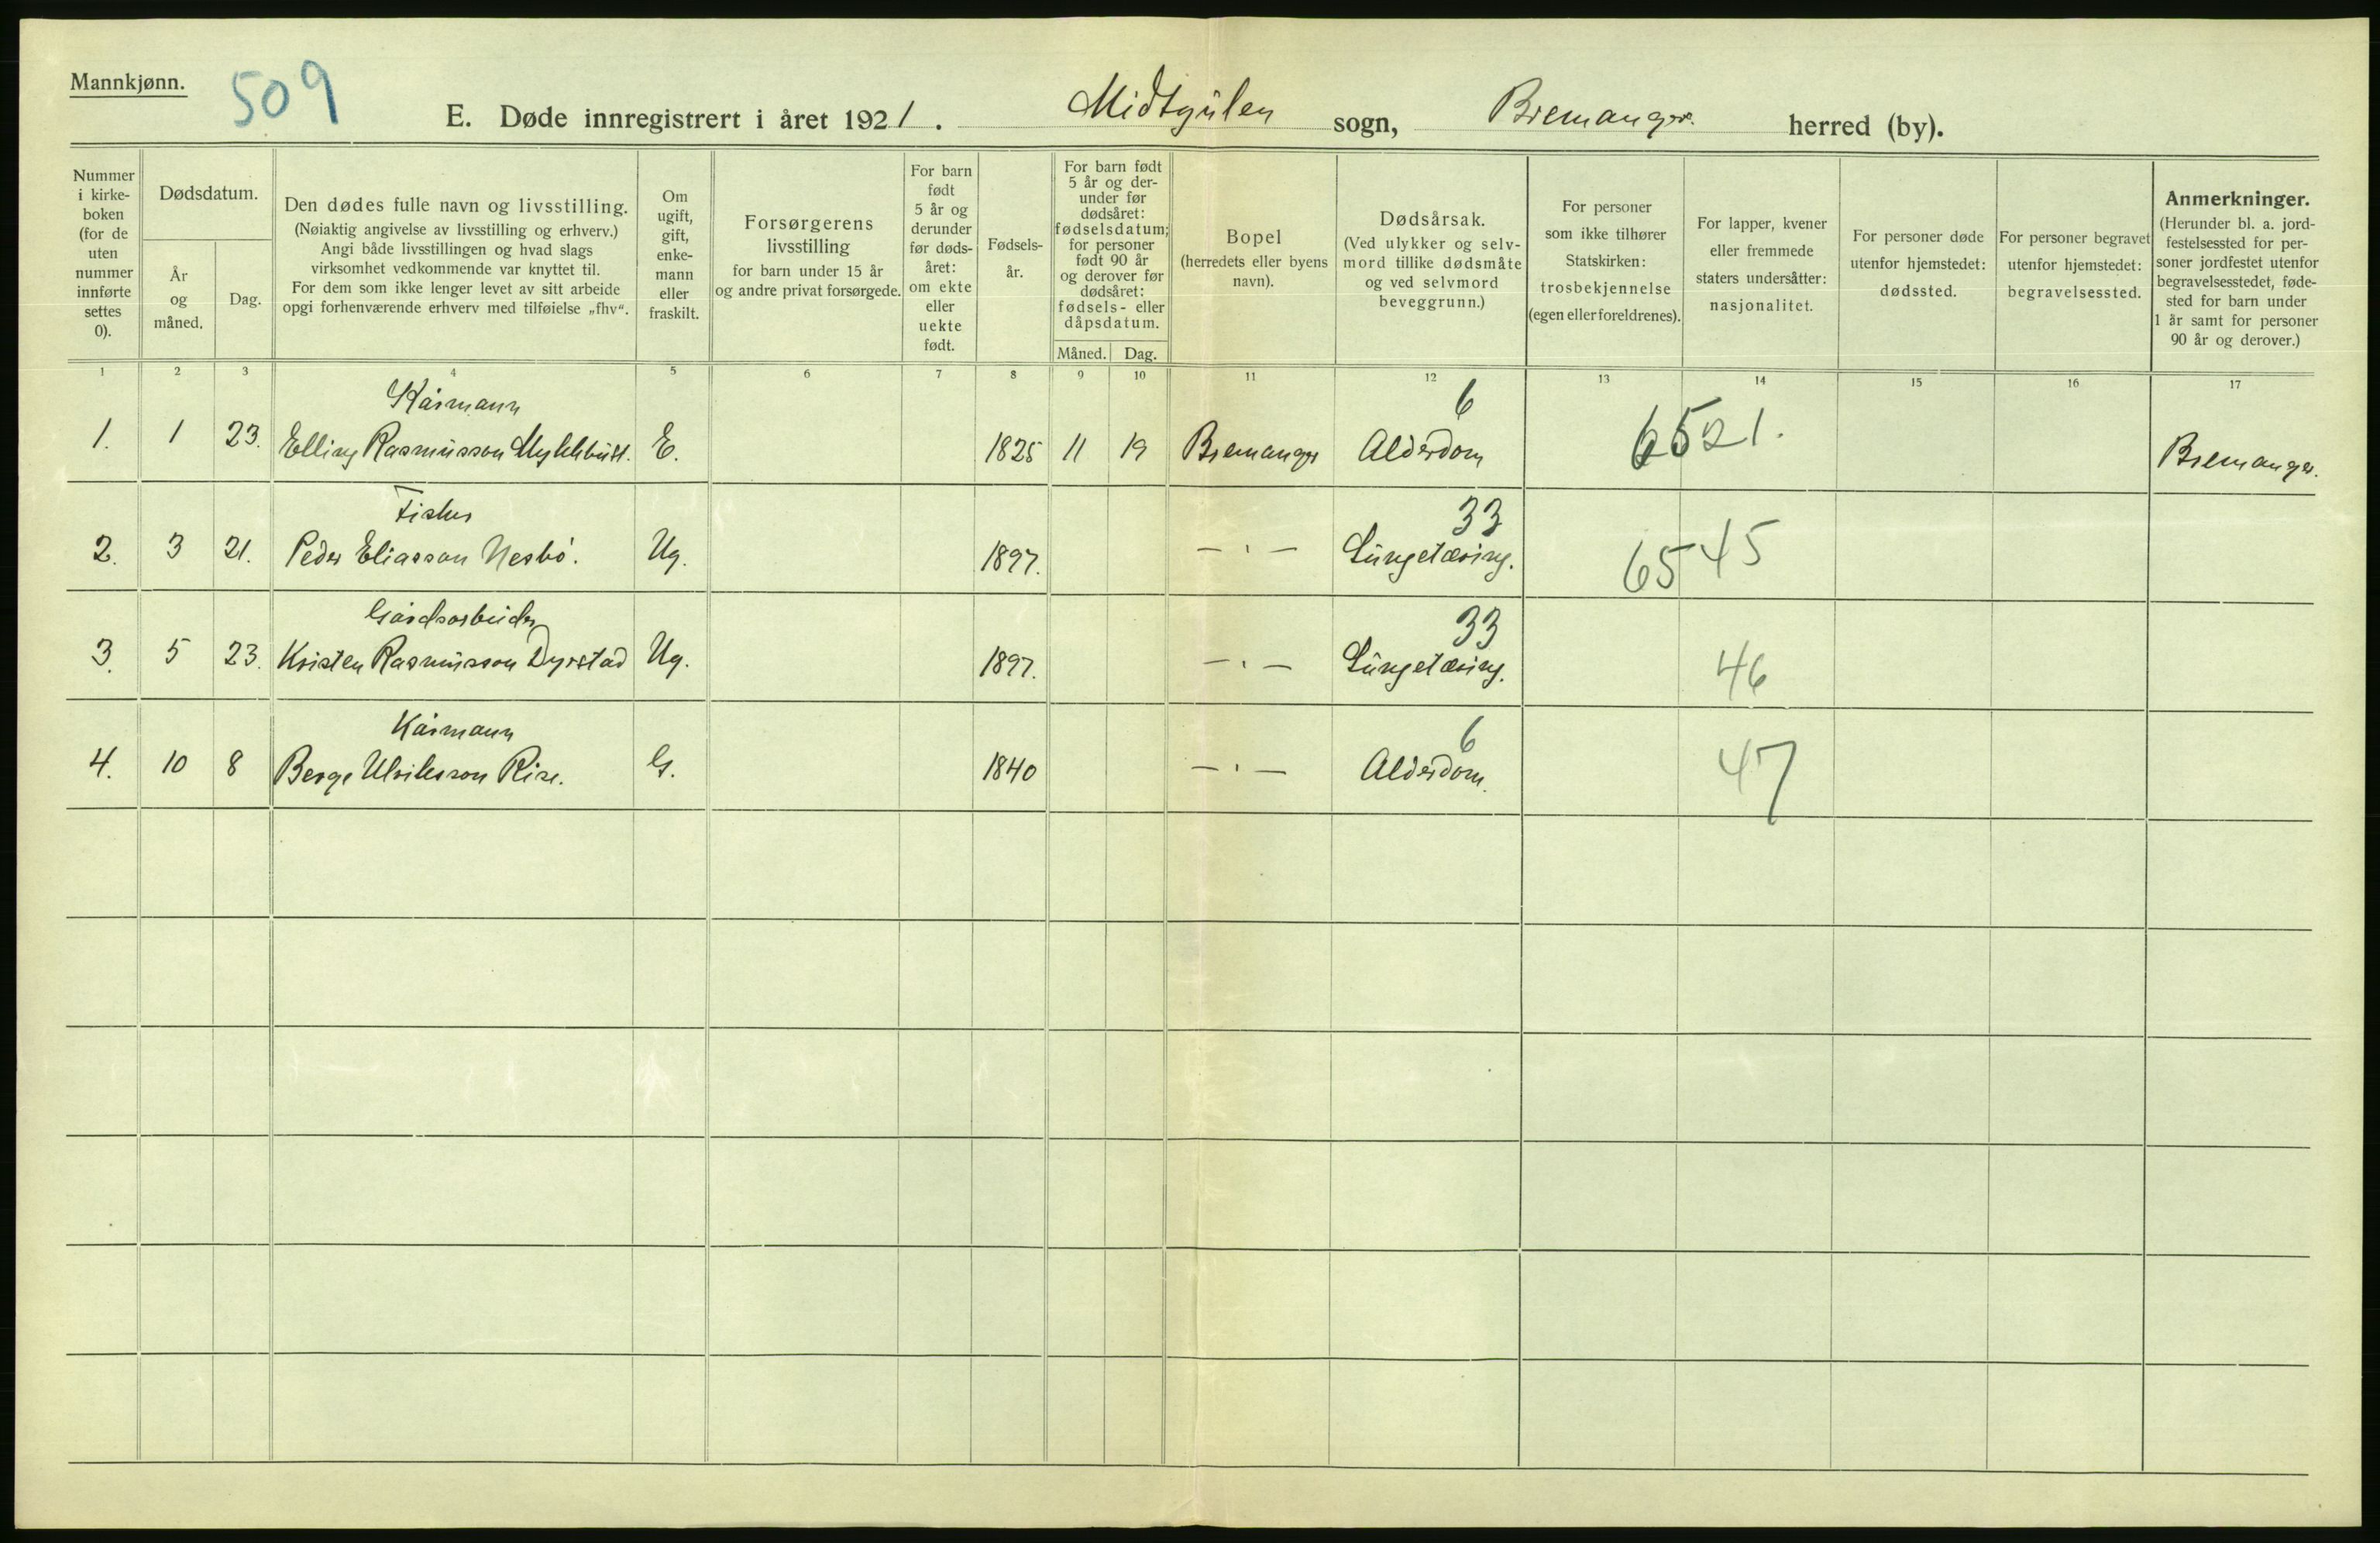 Mannkjønn.
509
E. Døde innregistrert i året 1921. Midtgulen sogn, Bremanger herred (by).
Nummer i kirke- boken (for de uten nummer innførte settes 0).
Dødsdatum.
År og måned.
Dag.
Den dødes fulle navn og livsstilling.
(Nøiaktig angivelse av livsstilling og erhverv.)
Angi både livsstillingen og hvad slags
virksomhet vedkommende var knyttet til.
For dem som ikke lenger levet av sitt arbeide
opgi forhenværende erhverv med tilføielse „fhv“.
Om ugift, gift, enke- mann eller fraskilt.
Forsørgerens
livsstilling
for barn under 15 år
og andre privat forsørgede.
For barn født 5 år og derunder før døds- året: om ekte eller uekte født.
Fødsels- år.
For barn født 5 år og der- under før dødsåret: fødselsdatum; for personer født 90 år og derover før dødsåret: fødsels- eller dåpsdatum.
Måned. Dag.
Bopel
(herredets eller byens
navn).
Dødsårsak.
(Ved ulykker og selv-
mord tillike dødsmåte
og ved selvmord
beveggrunn.)
For personer
som ikke tilhører
Statskirken:
trosbekjennelse
(egen eller foreldrenes).
For lapper, kvener
eller fremmede
staters undersåtter:
nasjonalitet.
For personer døde
utenfor hjemstedet:
dødssted.
For personer begravet
utenfor hjemstedet:
begravelsessted.
Anmerkninger.
(Herunder bl. a. jord-
festelsessted for per-
soner jordfestet utenfor
begravelsesstedet, føde-
sted for barn under
1 år samt for personer
90 år og derover.)
1 2 3 4 5 6 7 8 9 10 11 12 13 14 15 16 17
Kårmann 6
1. 1 23. Elling Rasmusson Myklebust. E. 1825 11 19 Bremanger Alderdom 6521. Bremanger.
Fisker 33
2. 3 21. Peder Eliasson Nesbø. Ug. 1897. — " — Lungetæring. 6545
Gårdsarbeider 33
3. 5 23. Kristen Rasmusson Dyrstad Ug. 1897. — " — Lungetæring. 46
Kårmann 6
4. 10 8 Berge Ulriksson Rise. G. 1840 — " — Alderdom. 47